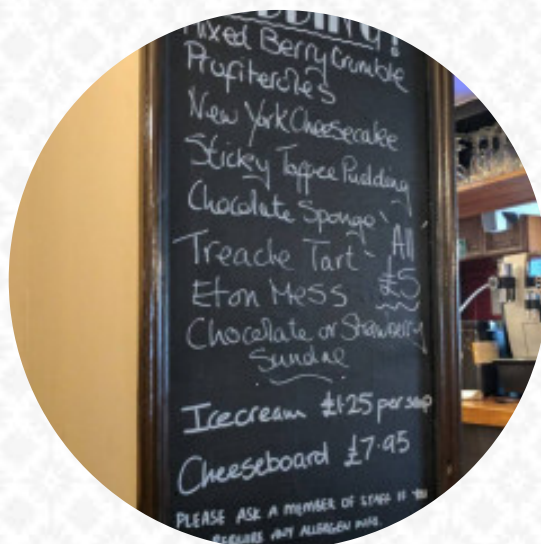 Mixed Berry Crumble
Profiteroles
New York Cheesecake
Sticky Toffee Pudding
Chocolate Sponge
Treacle Tart All
Eton Mess £5
Chocolate or Strawberry
Sundae
Icecream £1.25 per scoop
Cheeseboard £7.95
PLEASE ASK A MEMBER OF STAFF IF YOU
REQUIRE ANY ALLERGEN INFO.